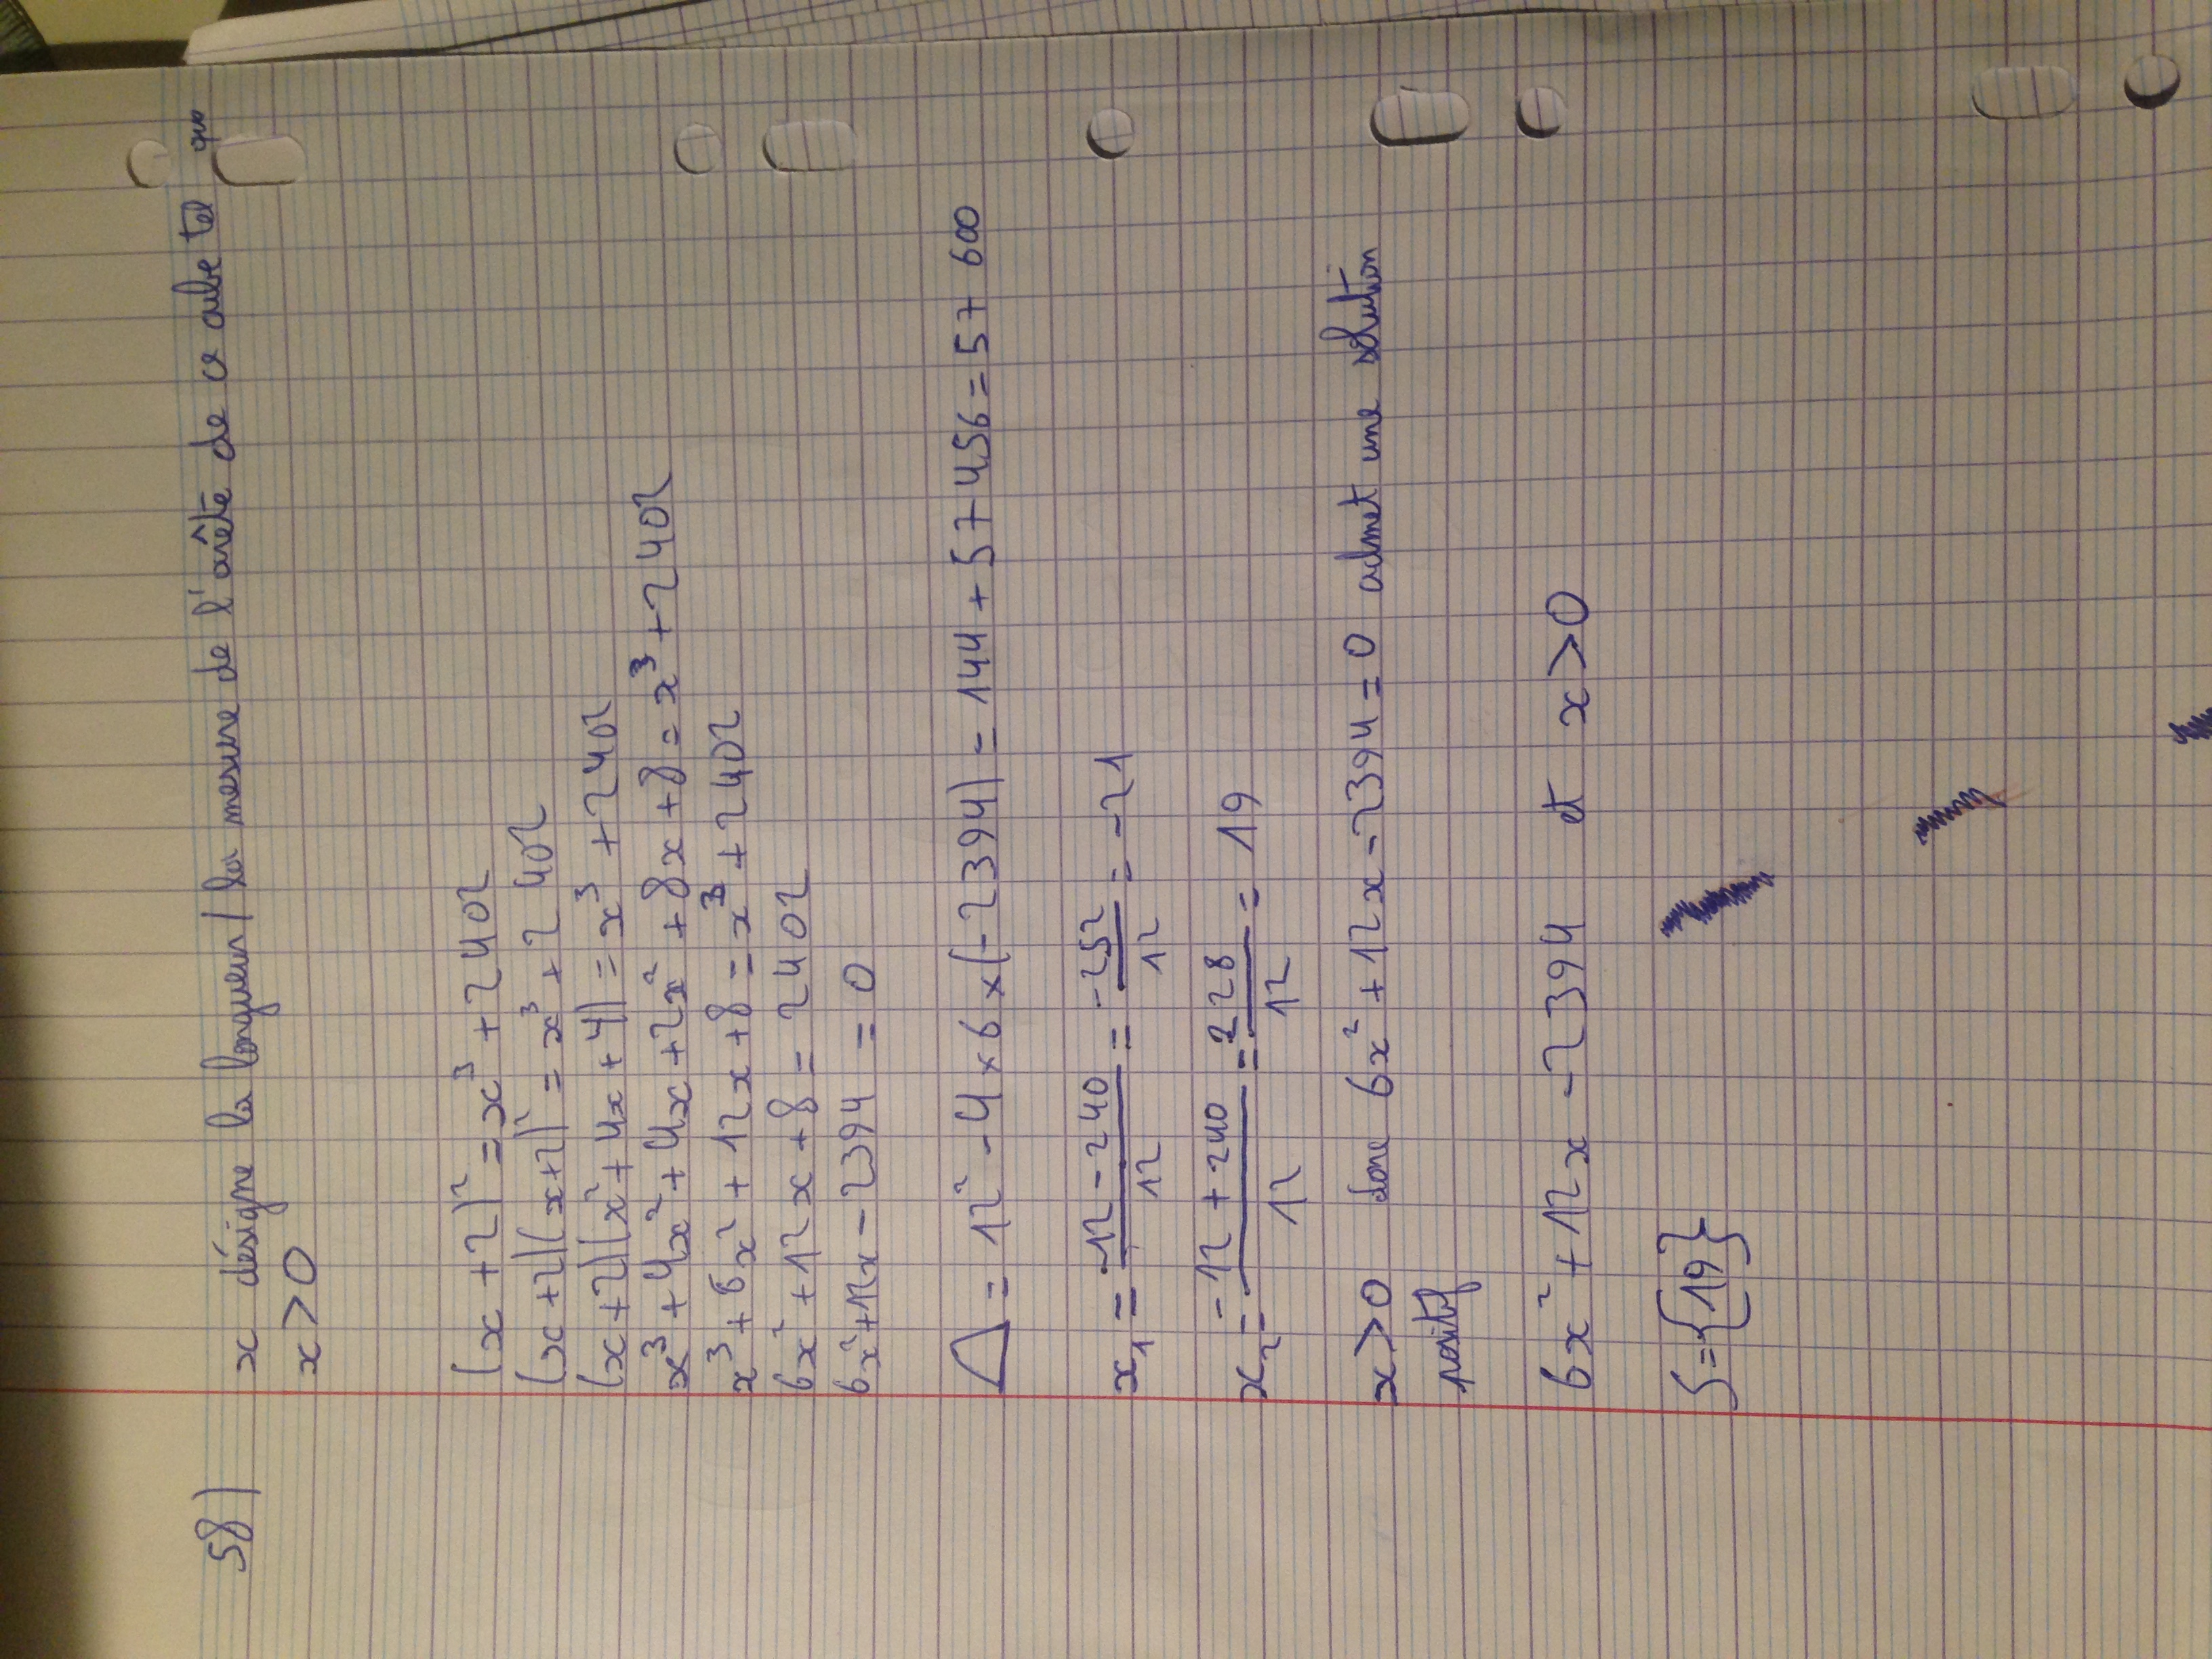 58)
x désigne la longueur / la mesure de l'arête de ce cube tel que
x > 0
(x + 2)² = x³ + 2402
(x + 2)(x + 2)² = x³ + 2402
(x + 2)(x² + 4x + 4) = x³ + 2402
x³ + 4x² + 4x + 2x² + 8x + 8 = x³ + 2402
x³ + 6x² + 12x + 8 = x³ + 2402
6x² + 12x + 8 = 2402
6x² + 12x - 2394 = 0
Δ = 12² - 4 × 6 × (-2394) = 144 + 57 456 = 57 600
x₁ = (-12 - 240)/12 = -252/12 = -21
x₂ = (-12 + 240)/12 = 228/12 = 19
x > 0 donc 6x² + 12x - 2394 = 0 admet une solution
positif
6x² + 12x - 2394 et x > 0
S = {19}